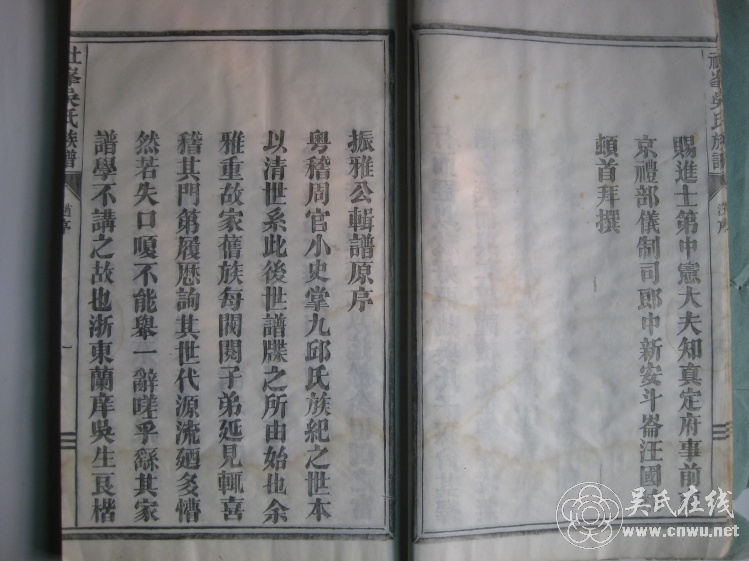 賜進士第中憲大夫知真定府事前
京禮部儀制司郎中新安斗崙汪國
頓首拜撰
吳氏族譜
舊序
振雅公輯譜原序
粵稽周官小史掌九邱氏族紀之世本
以清世系此後世譜牒之所由始也余
雅重故家舊族每閥閱子弟延見輒喜
稽其門第履歷詢其世代源流廼多懵
然若失口嗄不能舉一辭嗟乎繇其家
譜學不講之故也浙東蘭庠吳生良楷
吳氏族譜
舊序
一
吳氏在线
www.cnwu.net